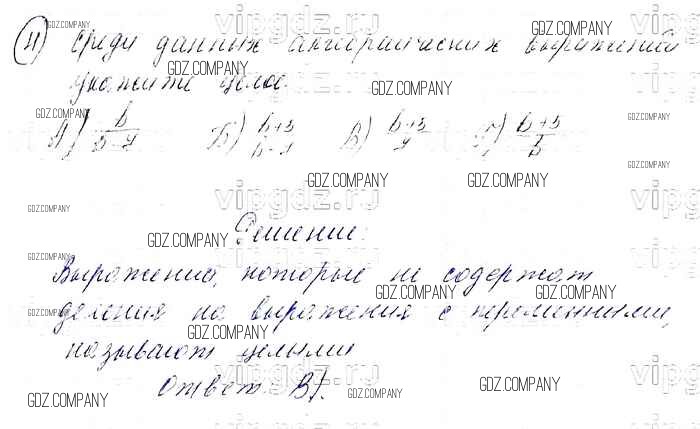 11) Среди данных алгебраических выражений
укажите целое.
А) b/b-7 Б) b+5/b-7 В) b+5/7 Г) b+5/b
Решение:
Выражения, которые не содержат
деления на выражения с переменными,
называют целыми
Ответ В).
GDZ.COMPANY
vipgdz.ru